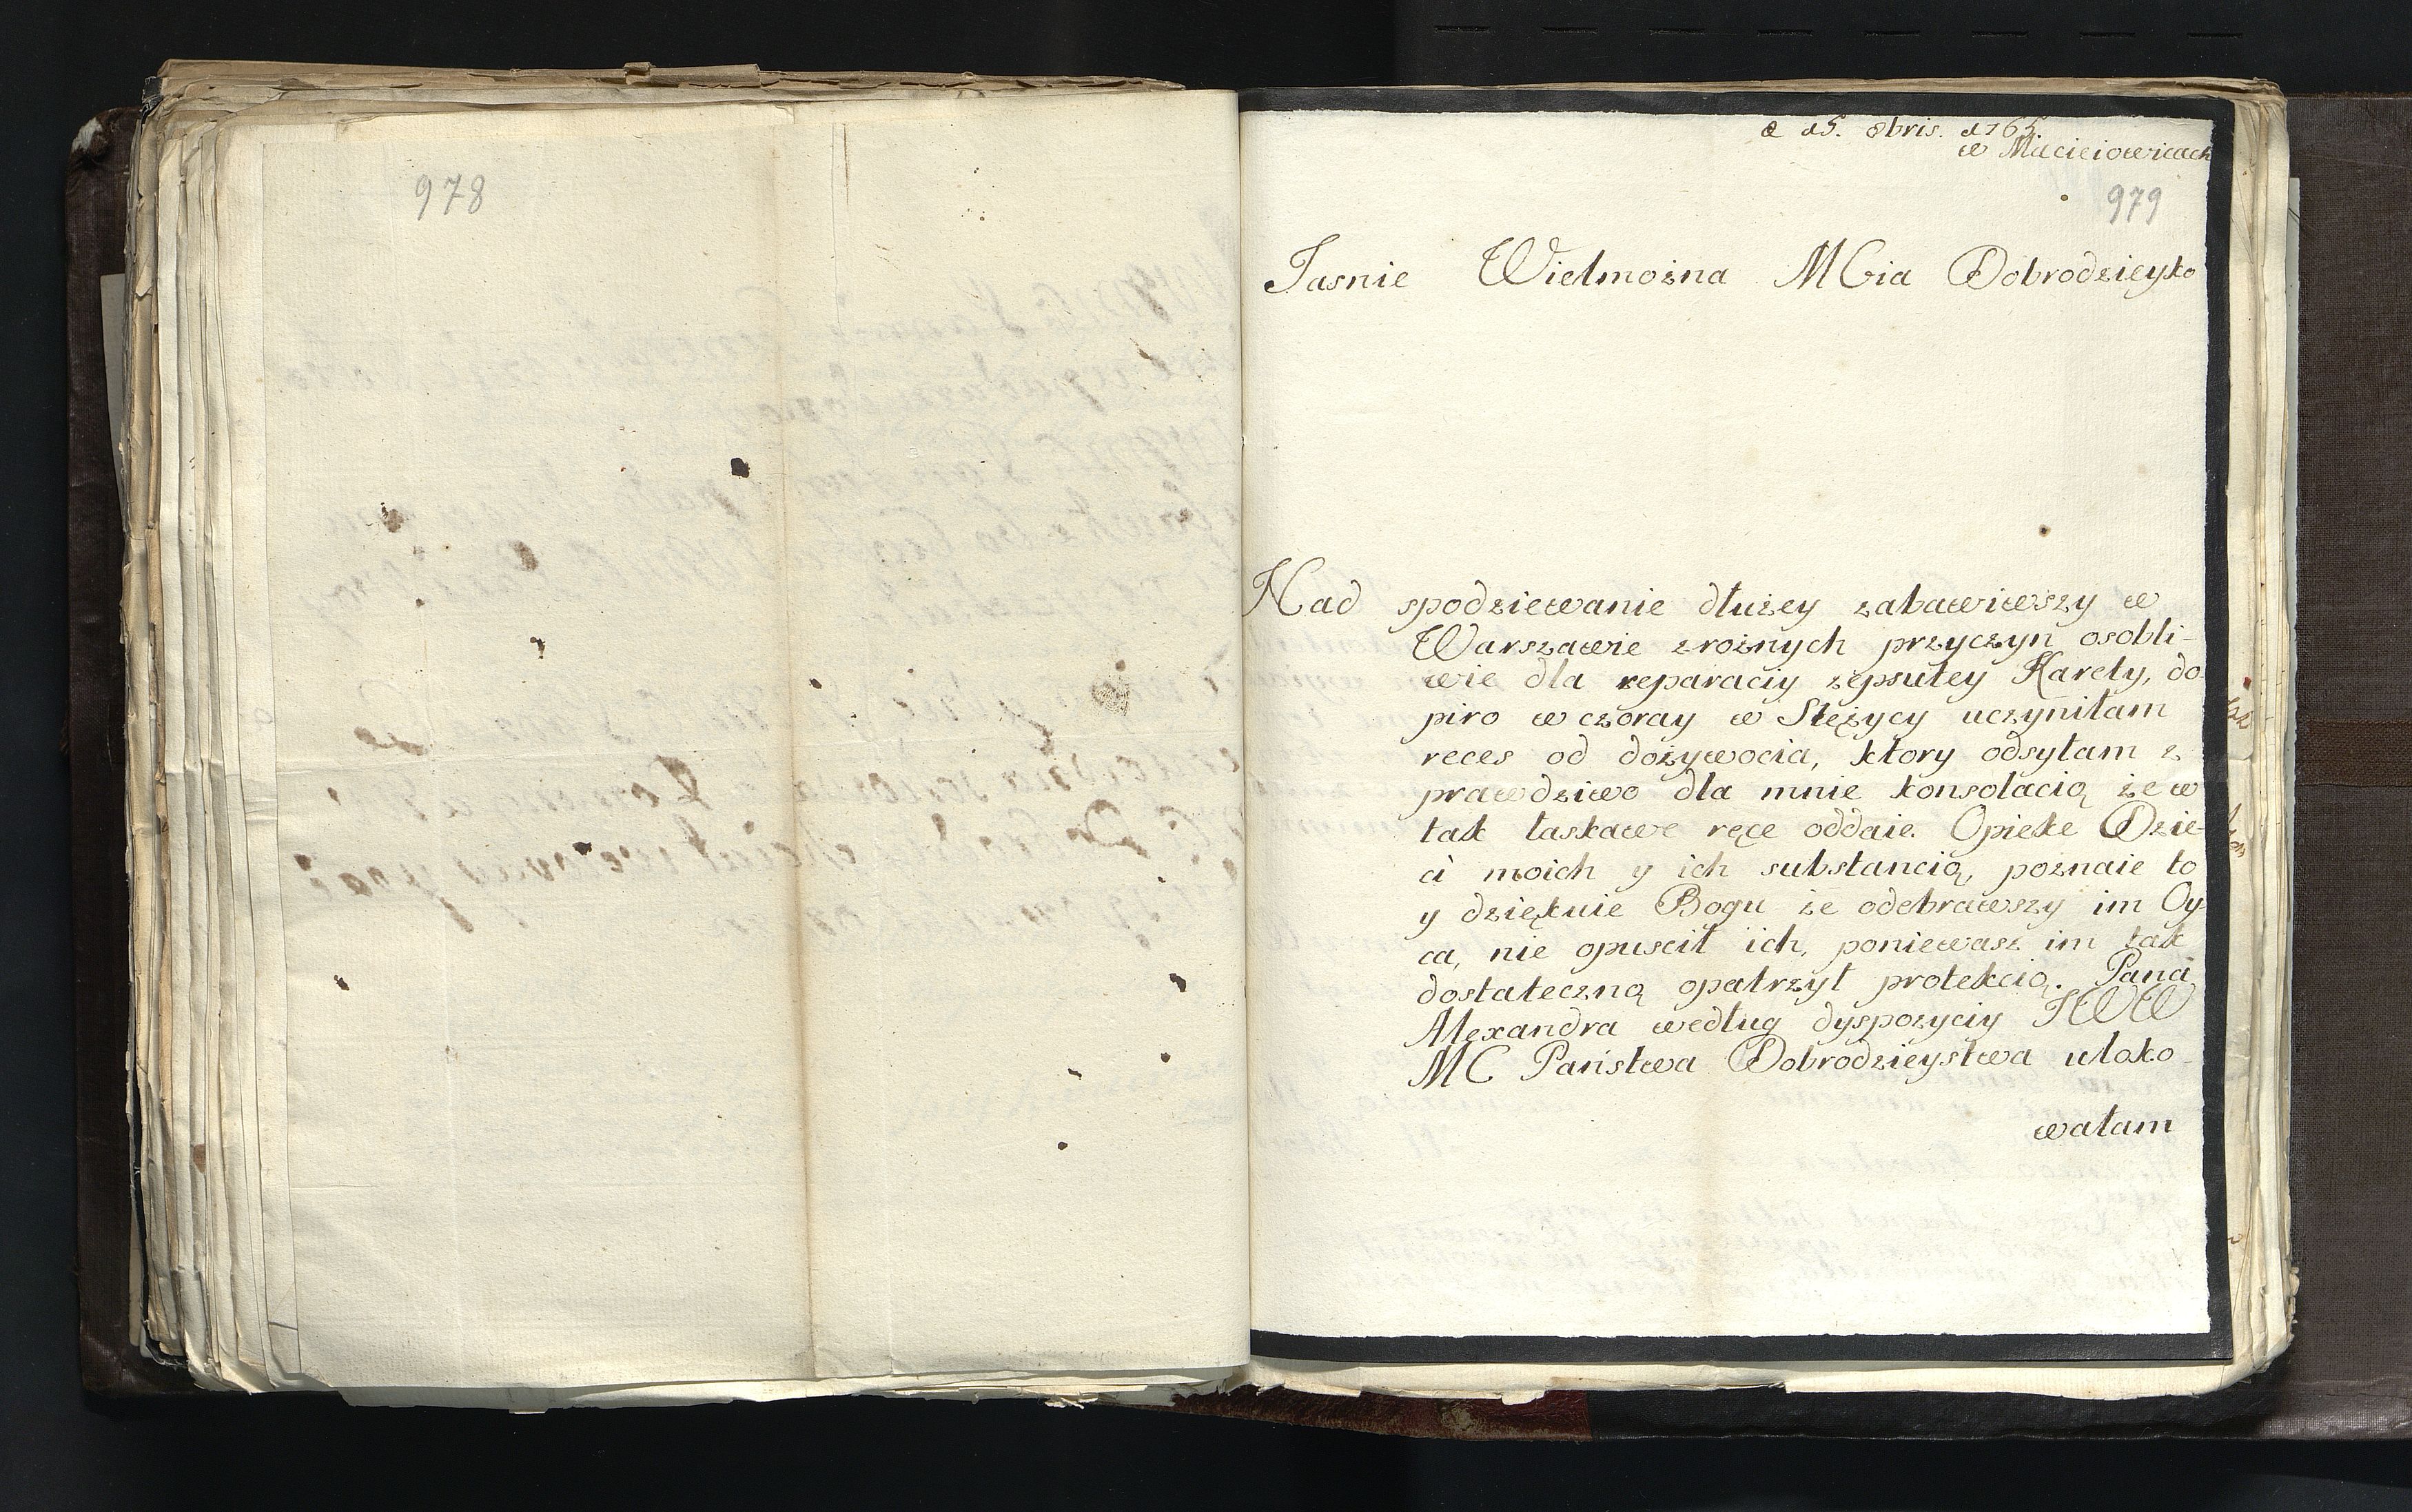 978
d 15. 8bris. 1765.
w Macieiowicach
979
Jasnie Wielmożna MCia Dobrodzieyko
Nad spodziewanie dłużey zabawiwszy w
Warszawie zrożnych przyczyn osobli-
wie dla reparaciy zepsutey Karety, do
piro wczoray w Stężycy uczyniłam
reces od dożywocia, ktory odsyłam z
prawdziwo dla mnie konsolacią że w
tak łaskawe ręce oddaie Opieke Dzie-
ci moich y ich substancią, poznaie to
y dziękuie Bogu że odebrawszy im Oy-
ca, nie opuscił ich, poniewasz im tak
dostateczną opatrzył protekcią. Pana
Alexandra według dyspozyciy JWW
MC Państwa Dobrodzieystwa uloko-
wałam